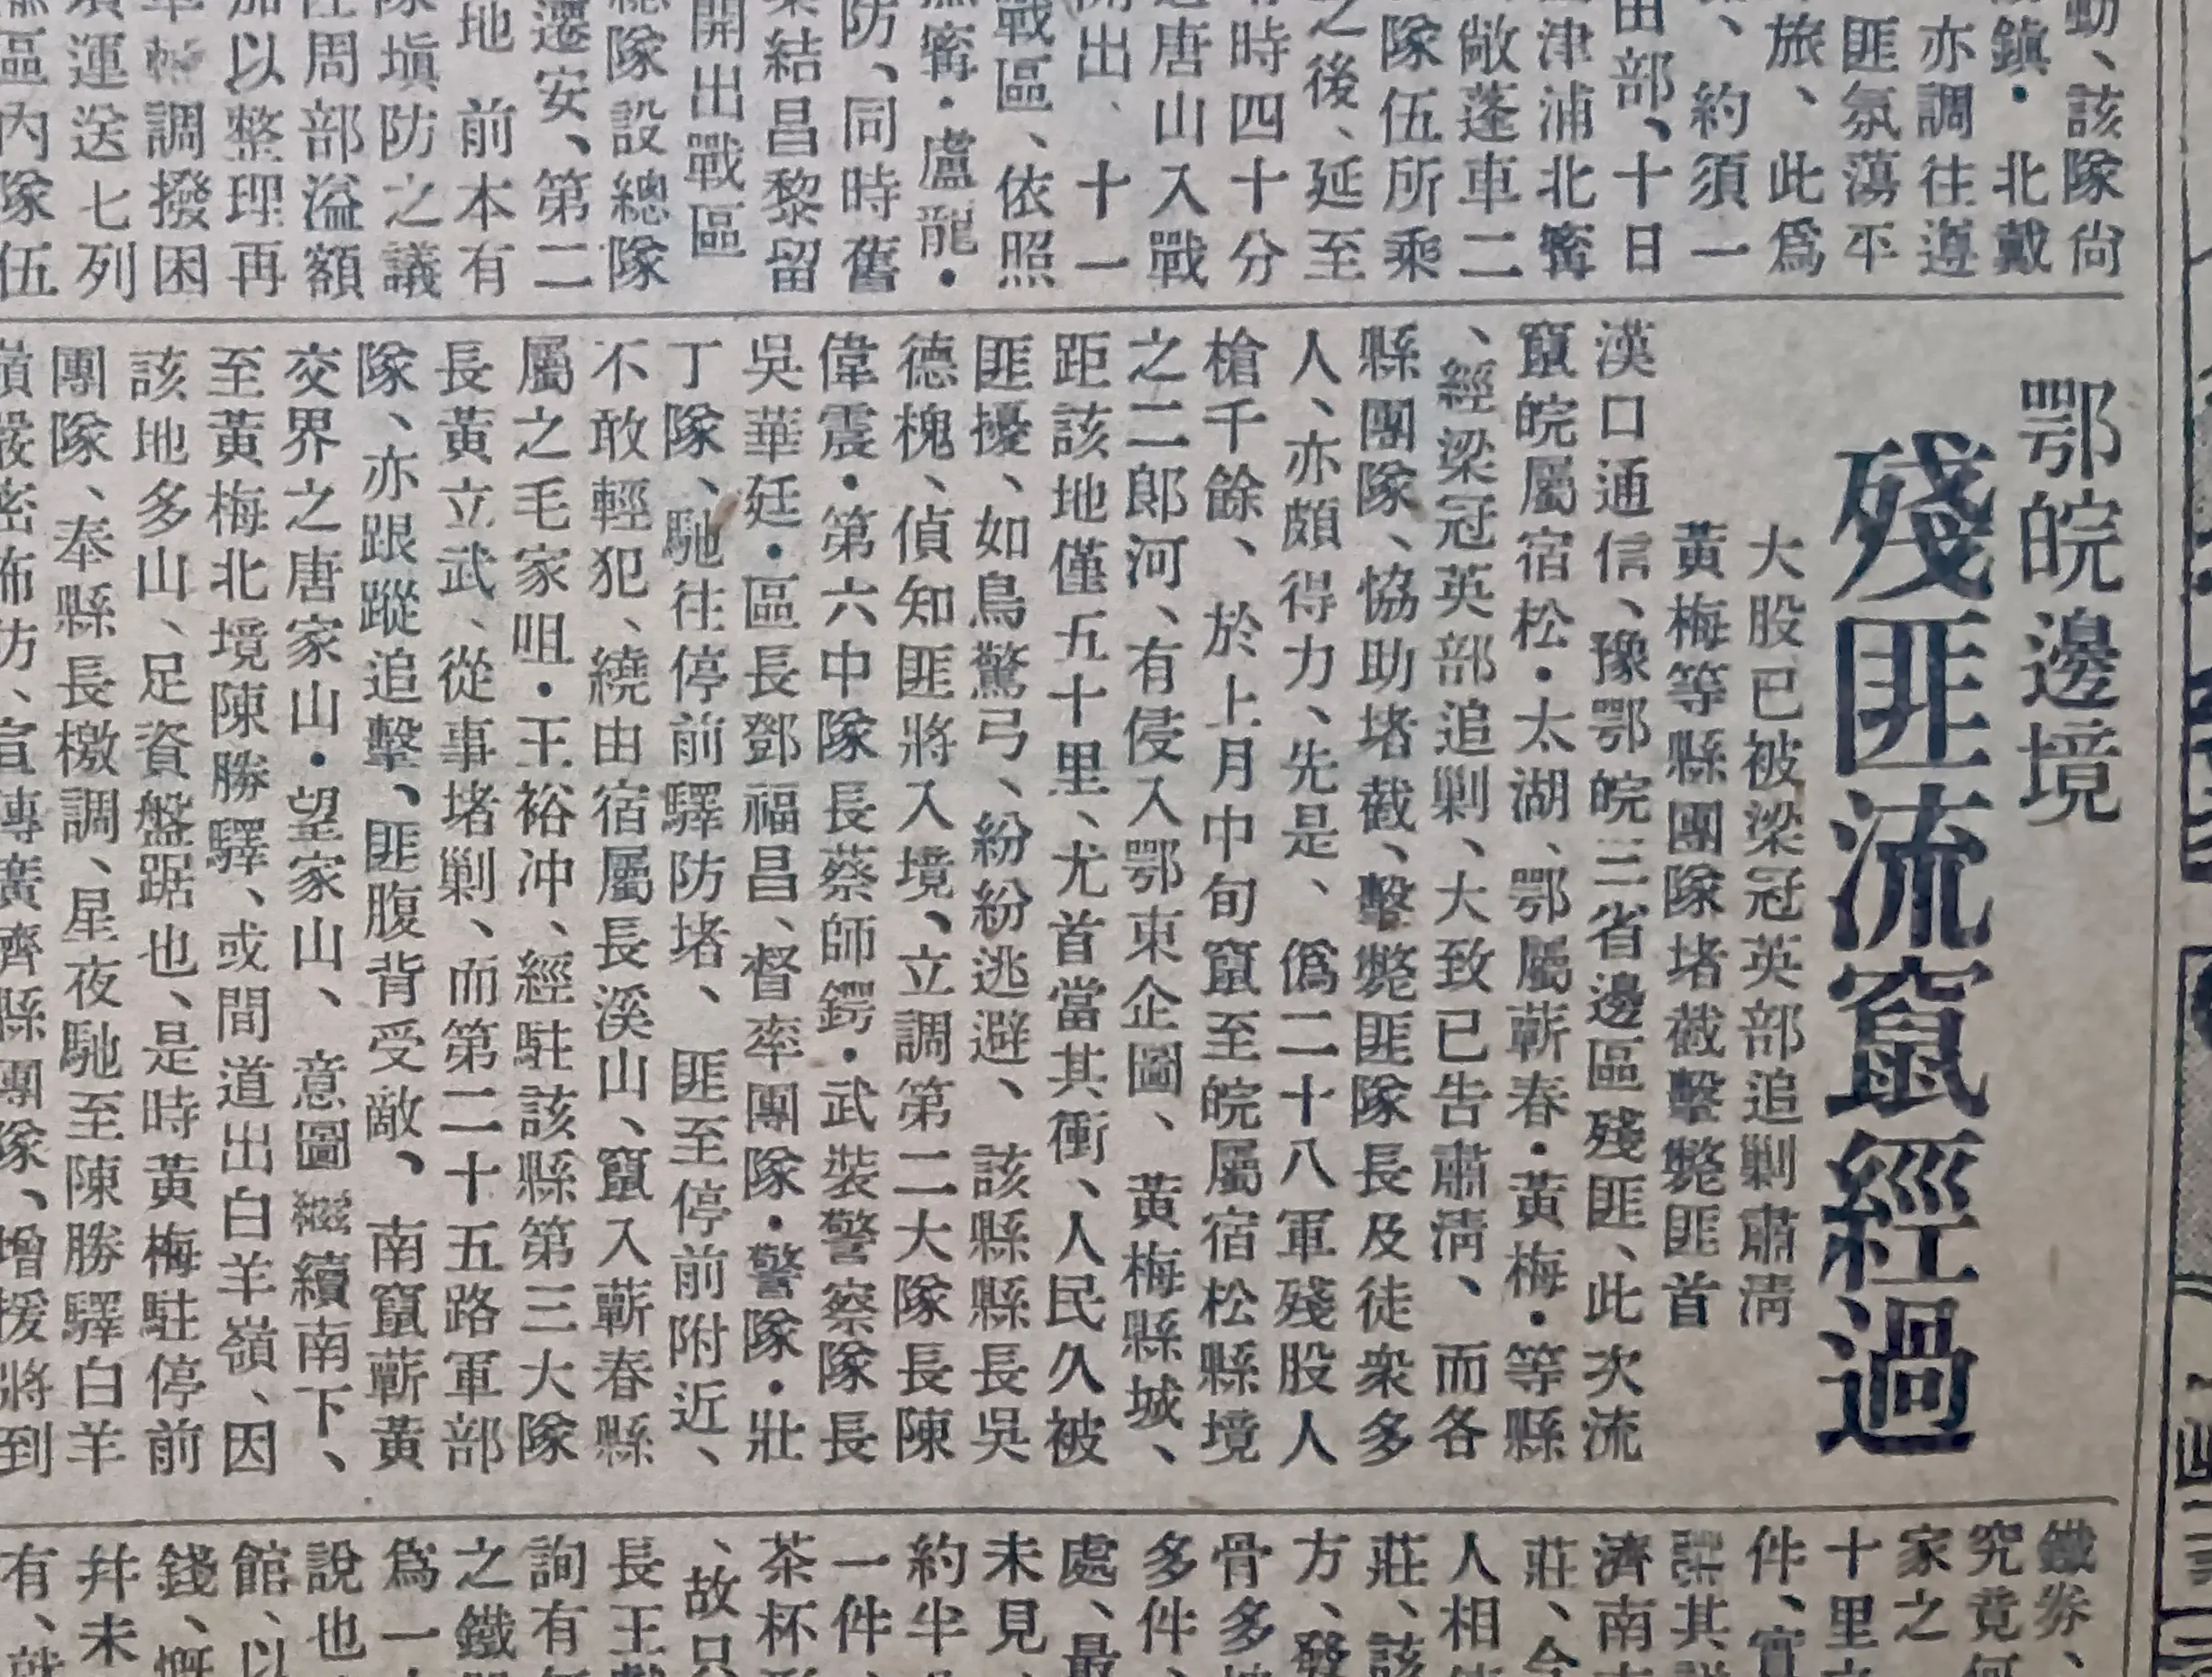 動、該隊尙
鎮・北戴
亦調往遵
匪氛蕩平
旅、此爲
、約須一
由部、十日
津浦北寗
敞蓬車二
隊伍所乘
之後、延至
時四十分
唐山入戰
開出、十一
戰區、依照
撫寗・盧龍・
防、同時舊
集結昌黎留
開出戰區
總隊設總隊
遷安、第二
地 前本有
隊塡防之議
周部溢額
加以整理再
調撥困
運送七列
區內隊伍
鄂皖邊境
殘匪流竄經過
大股已被梁冠英部追剿肅淸
黃梅等縣團隊堵截擊斃匪首
漢口通信、豫鄂皖三省邊區殘匪、此次流
竄皖屬宿松・太湖、鄂屬蘄春・黃梅・等縣
、經梁冠英部追剿、大致已告肅淸、而各
縣團隊、協助堵截、擊斃匪隊長及徒衆多
人、亦頗得力、先是、僞二十八軍殘股人
槍千餘、於上月中旬竄至皖屬宿松縣境
之二郎河、有侵入鄂東企圖、黃梅縣城、
距該地僅五十里、尤首當其衝、人民久被
匪擾、如鳥驚弓、紛紛逃避、該縣縣長吳
德槐、偵知匪將入境、立調第二大隊長陳
偉震・第六中隊長蔡師鍔・武裝警察隊長
吳華廷・區長鄧福昌、督率團隊・警隊・壯
丁隊、馳往停前驛防堵、匪至停前附近、
不敢輕犯、繞由宿屬長溪山、竄入蘄春縣
屬之毛家咀・王裕冲、經駐該縣第三大隊
長黃立武、從事堵剿、而第二十五路軍部
隊、亦跟蹤追擊、匪腹背受敵、南竄蘄黃
交界之唐家山・望家山、意圖繼續南下、
至黃梅北境陳勝驛、或間道出白羊嶺、因
該地多山、足資盤踞也、是時黃梅駐停前
團隊、奉縣長檄調、星夜馳至陳勝驛白羊
嶺嚴密佈防、宣傳廣濟縣團隊、增援將到
鐵券、
究竟何
家之
十里
件、實
其
濟南
莊、今
人相
莊、該
方、發
骨多
多件、
處、最
未見、
約半
一件、
茶杯形
、故只
長王
詢有
之鐵
爲一
說也
館、以
錢、慨
幷未
有、就